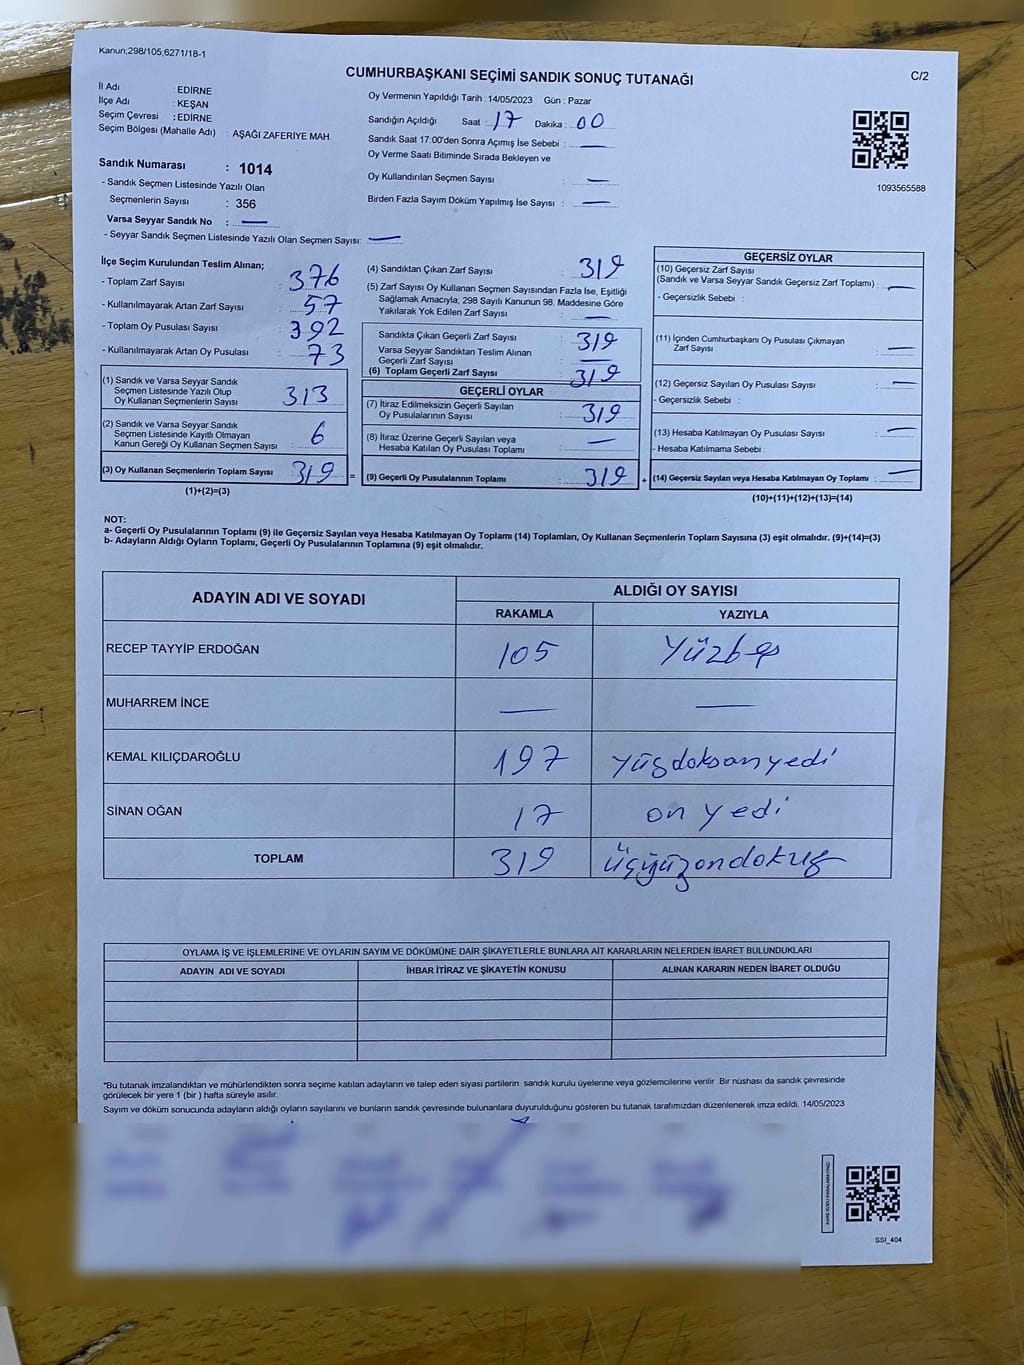 Kanun,298/105,6271/18-1
CUMHURBAŞKANI SEÇİMİ SANDIK SONUÇ TUTANAĞI
C/2
İl Adı : EDİRNE
İlçe Adı : KEŞAN
Seçim Çevresi : EDİRNE
Seçim Bölgesi (Mahalle Adı) : AŞAĞI ZAFERİYE MAH.
Sandık Numarası : 1014
- Sandık Seçmen Listesinde Yazılı Olan
Seçmenlerin Sayısı : 356
Varsa Seyyar Sandık No : —
- Seyyar Sandık Seçmen Listesinde Yazılı Olan Seçmen Sayısı: —
Oy Vermenin Yapıldığı Tarih :14/05/2023 Gün : Pazar
Sandığın Açıldığı Saat : 17 Dakika : 00
Sandık Saat 17:00'den Sonra Açımış İse Sebebi : —
Oy Verme Saati Bitiminde Sırada Bekleyen ve
Oy Kullandırılan Seçmen Sayısı : —
Birden Fazla Sayım Döküm Yapılmış İse Sayısı : —
1093565588
İlçe Seçim Kurulundan Teslim Alınan;
- Toplam Zarf Sayısı : 376
- Kullanılmayarak Artan Zarf Sayısı : 57
- Toplam Oy Pusulası Sayısı : 392
- Kullanılmayarak Artan Oy Pusulası : 73
(1) Sandık ve Varsa Seyyar Sandık
Seçmen Listesinde Yazılı Olup
Oy Kullanan Seçmenlerin Sayısı : 313
(2) Sandık ve Varsa Seyyar Sandık
Seçmen Listesinde Kayıtlı Olmayan
Kanun Gereği Oy Kullanan Seçmen Sayısı : 6
(3) Oy Kullanan Seçmenlerin Toplam Sayısı : 319 =
(1)+(2)=(3)
(4) Sandıktan Çıkan Zarf Sayısı : 319
(5) Zarf Sayısı Oy Kullanan Seçmen Sayısından Fazla İse, Eşitliği
Sağlamak Amacıyla, 298 Sayılı Kanunun 98. Maddesine Göre
Yakılarak Yok Edilen Zarf Sayısı : —
Sandıkta Çıkan Geçerli Zarf Sayısı : 319
Varsa Seyyar Sandıktan Teslim Alınan
Geçerli Zarf Sayısı : —
(6) Toplam Geçerli Zarf Sayısı : 319
GEÇERLİ OYLAR
(7) İtiraz Edilmeksizin Geçerli Sayılan
Oy Pusulalarının Sayısı : 319
(8) İtiraz Üzerine Geçerli Sayılan veya
Hesaba Katılan Oy Pusulası Toplamı : —
(9) Geçerli Oy Pusulalarının Toplamı : 319 +
GEÇERSİZ OYLAR
(10) Geçersiz Zarf Sayısı
(Sandık ve Varsa Seyyar Sandık Geçersiz Zarf Toplamı) : —
- Geçersizlik Sebebi :
(11) İçinden Cumhurbaşkanı Oy Pusulası Çıkmayan
Zarf Sayısı : —
(12) Geçersiz Sayılan Oy Pusulası Sayısı : —
- Geçersizlik Sebebi :
(13) Hesaba Katılmayan Oy Pusulası Sayısı : —
- Hesaba Katılmama Sebebi :
(14) Geçersiz Sayılan veya Hesaba Katılmayan Oy Toplamı : —
(10)+(11)+(12)+(13)=(14)
NOT:
a- Geçerli Oy Pusulalarının Toplamı (9) ile Geçersiz Sayılan veya Hesaba Katılmayan Oy Toplamı (14) Toplamları, Oy Kullanan Seçmenlerin Toplam Sayısına (3) eşit olmalıdır. (9)+(14)=(3)
b- Adayların Aldığı Oyların Toplamı, Geçerli Oy Pusulalarının Toplamına (9) eşit olmalıdır.
ADAYIN ADI VE SOYADI
ALDIĞI OY SAYISI
RAKAMLA YAZIYLA
RECEP TAYYİP ERDOĞAN 105 Yüzbeş
MUHARREM İNCE — —
KEMAL KILIÇDAROĞLU 197 Yüzdoksanyedi
SİNAN OĞAN 17 on yedi
TOPLAM 319 üçyüzondokuz
OYLAMA İŞ VE İŞLEMLERİNE VE OYLARIN SAYIM VE DÖKÜMÜNE DAİR ŞİKAYETLERLE BUNLARA AİT KARARLARIN NELERDEN İBARET BULUNDUKLARI
ADAYIN ADI VE SOYADI İHBAR İTİRAZ VE ŞİKAYETİN KONUSU ALINAN KARARIN NEDEN İBARET OLDUĞU
*Bu tutanak imzalandıktan ve mühürlendikten sonra seçime katılan adayların ve talep eden siyasi partilerin sandık kurulu üyelerine veya gözlemcilerine verilir .Bir nüshası da sandık çevresinde
görülecek bir yere 1 (bir ) hafta süreyle asılır.
Sayım ve döküm sonucunda adayların aldığı oyların sayılarını ve bunların sandık çevresinde bulunanlara duyurulduğunu gösteren bu tutanak tarafımızdan düzenlenerek imza edildi. 14/05/2023
SSI_404